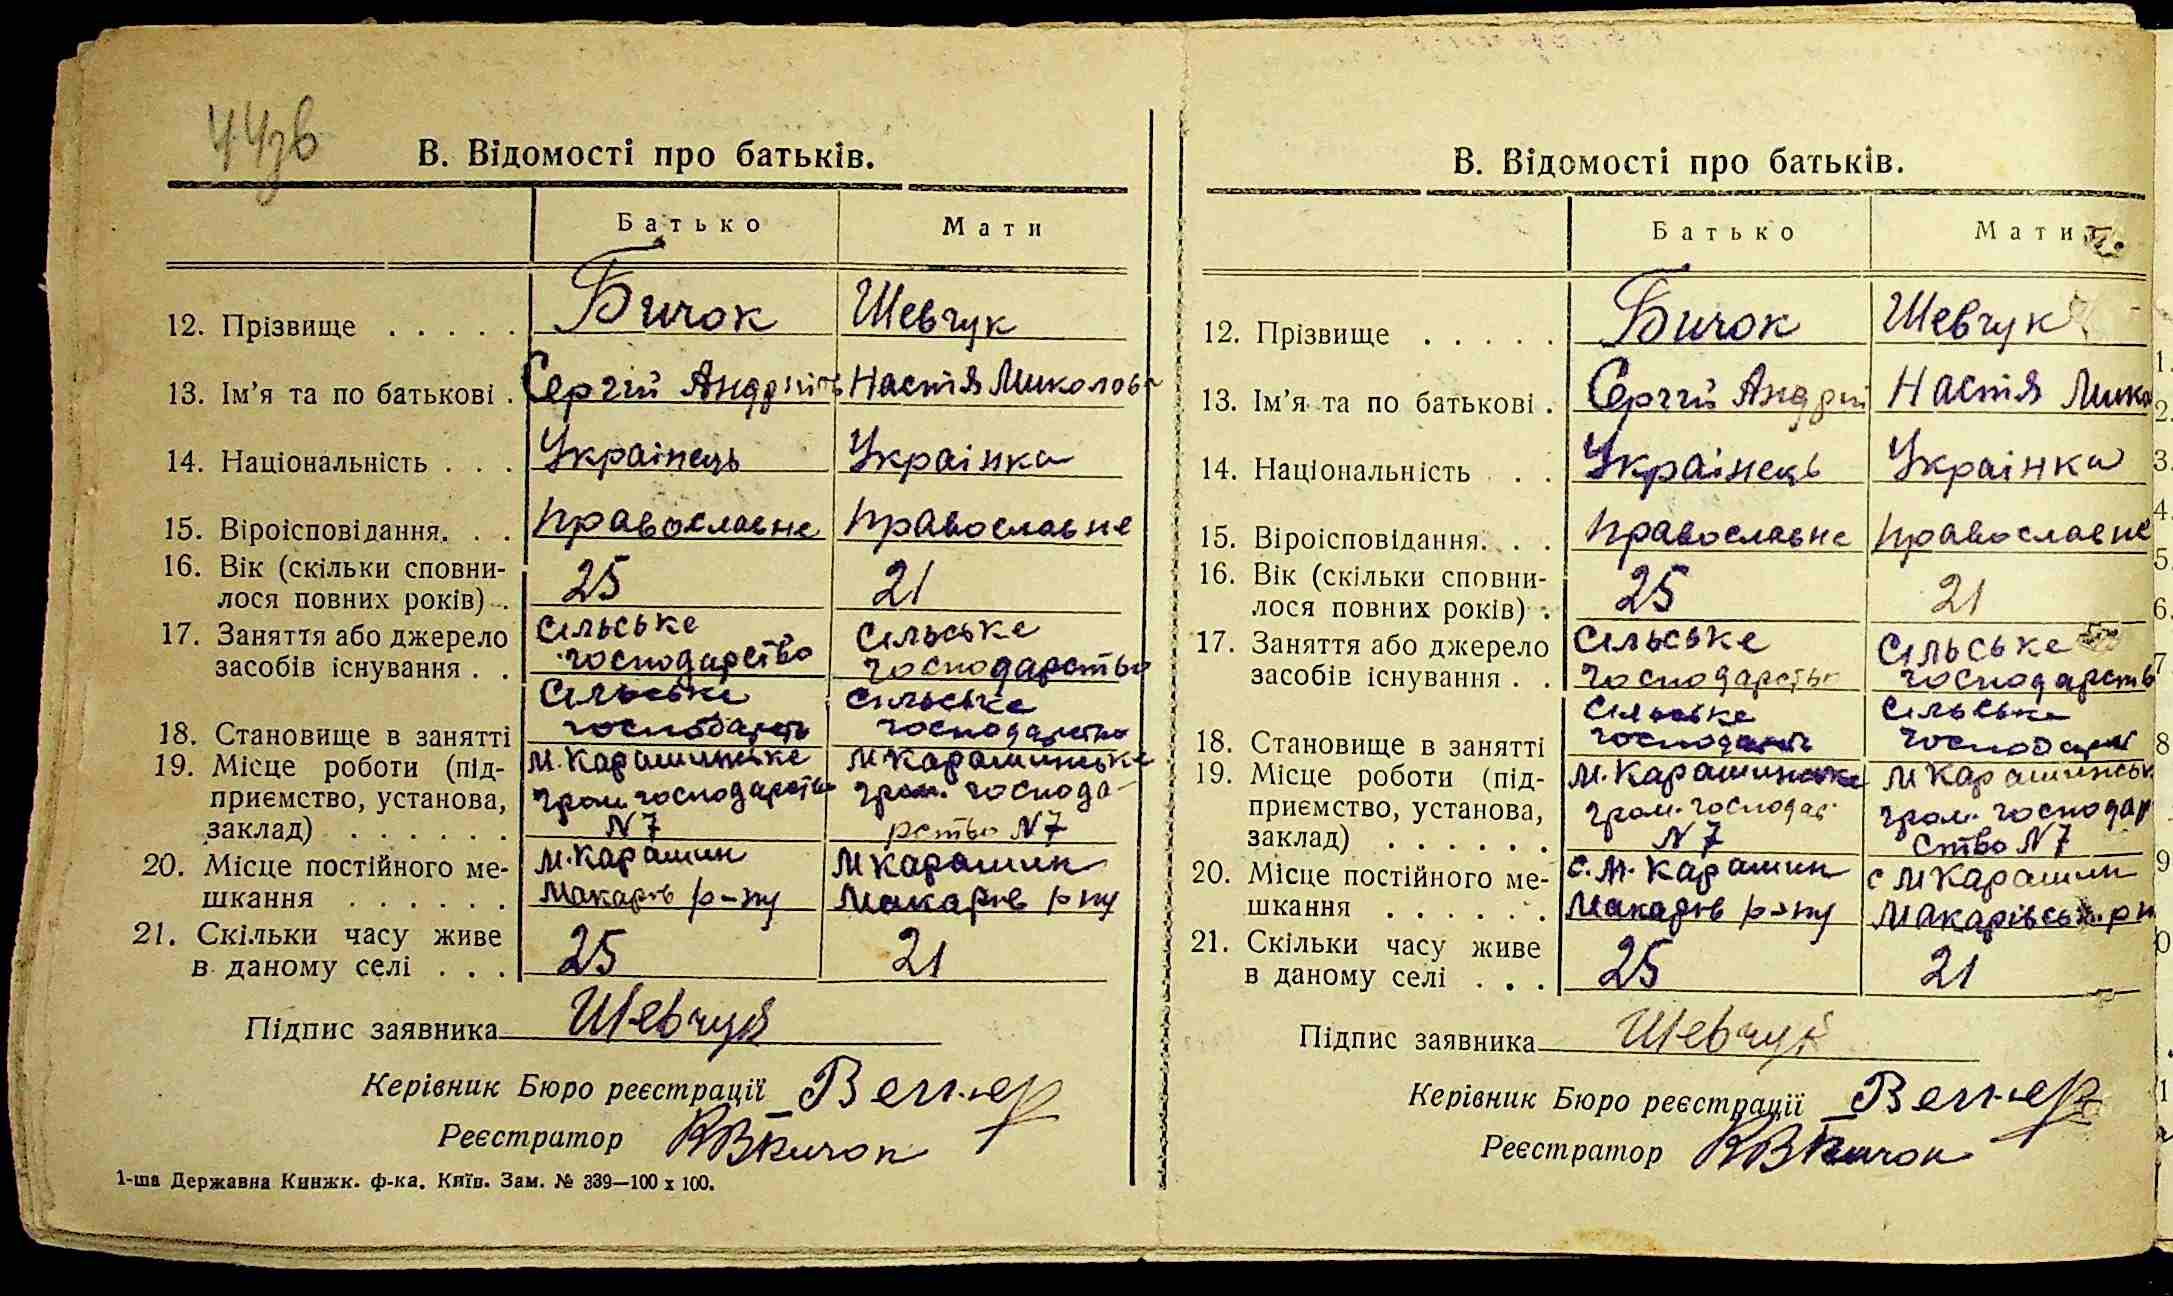 44зв
В. Відомості про батьків.
Батько Мати
12. Прізвище . . . . . Бичок Шевчук
13. Ім'я та по батькові . Сергій Андриів Настія Миколовн
14. Національність . . . Украінець Украінка
15. Віроісповідання. . . православне православне
16. Вік (скільки сповни-
лося повних років) . 25 21
17. Заняття або джерело сільське сільське
засобів існування . . господарство господарство
сільське сільське
18. Становище в занятті господарств господарство
19. Місце роботи (під- М.Карашинське М Карашинське
приємство, установа, гром господарство гром. господа-
заклад) . . . . . . N 7 рство N 7
20. Місце постійного ме- М.Карашин М Карашин
шкання . . . . . . Макарів р-ну Макарів р ну
21. Скільки часу живе
в даному селі . . . 25 21
Підпис заявника Шевчук
Керівник Бюро реєстрації Вегнер
Реєстратор Бичок
1-ша Державна Кинжк. ф-ка. Київ. Зам. № 339—100 х 100.
В. Відомості про батьків.
Батько Мати
12. Прізвище . . . . . Бичок Шевчук
13. Ім'я та по батькові . Сергій Андрій Настія Мико
14. Національність . . Украінець Украінка
15. Віроісповідання. . . православне православне
16. Вік (скільки сповни-
лося повних років) . 25 21
17. Заняття або джерело сільське сільське
засобів існування . . господарство господарств
сільське сільське
18. Становище в занятті господарств господарст
19. Місце роботи (під- М.Карашинське М Карашинськ
приємство, установа, гром. господар- гром. господар
заклад) . . . . . . N 7 ство N 7
20. Місце постійного ме- с. М. Карашин с М Карашин
шкання . . . . . . Макарів р-ну Макарівськ. рн
21. Скільки часу живе
в даному селі . . . 25 21
Підпис заявника Шевчук
Керівник Бюро реєстрації Вегнер
Реєстратор Бичок